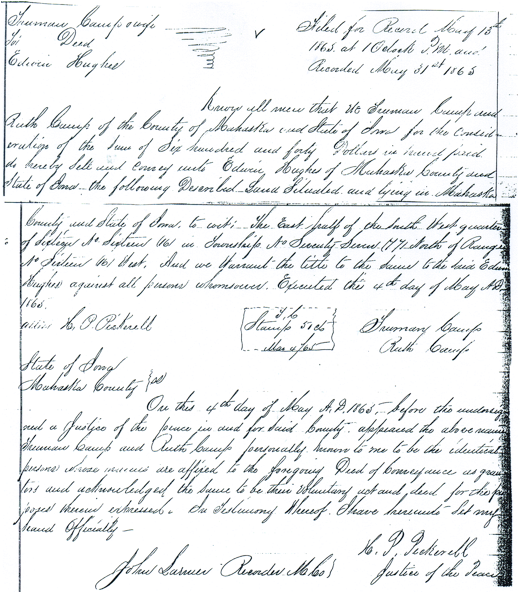 Truman Camp & wife
To Deed
Edwin Hughes
Filed for Record May 15th
1865 at 1 Oclock P.M. and
Recorded May 31st 1865
Know all men that We Truman Camp and
Ruth Camp of the County of Mahaska and State of Iowa for the consid-
eration of the sum of Six hundred and forty Dollars in hand paid
do hereby Sell and convey unto Edwin Hughes of Mahaska County and
State of Iowa the following Described Land Situated and lying in Mahaska
County and State of Iowa to wit: The East half of the South West quarter
of Section No Sixteen (16) in Township No Seventy Seven (77) North of Range
No Sixteen (16) West. And we Warrant the title to the same to the said Edwin
Hughes against all persons whomsoever. Executed this 4th day of May A.D.
1865.
attest H. P. Pickerell
Stamp 50 cts
Truman Camp
Ruth Camp
State of Iowa
Mahaska County } ss
On this 4th day of May A.D. 1865, before the undersig
ned a Justice of the peace in and for said County appeared the above named
Truman Camp and Ruth Camp personally known to me to be the identical
persons whose names are affixed to the foregoing Deed of Conveyance as gran
tors and acknowledged the same to be their Voluntary act and deed for the pur
poses therein expressed. In Testimony Whereof I have hereunto Set my
hand Officially —
H. P. Pickerell
Justice of the Peace
John Recorder M Co }